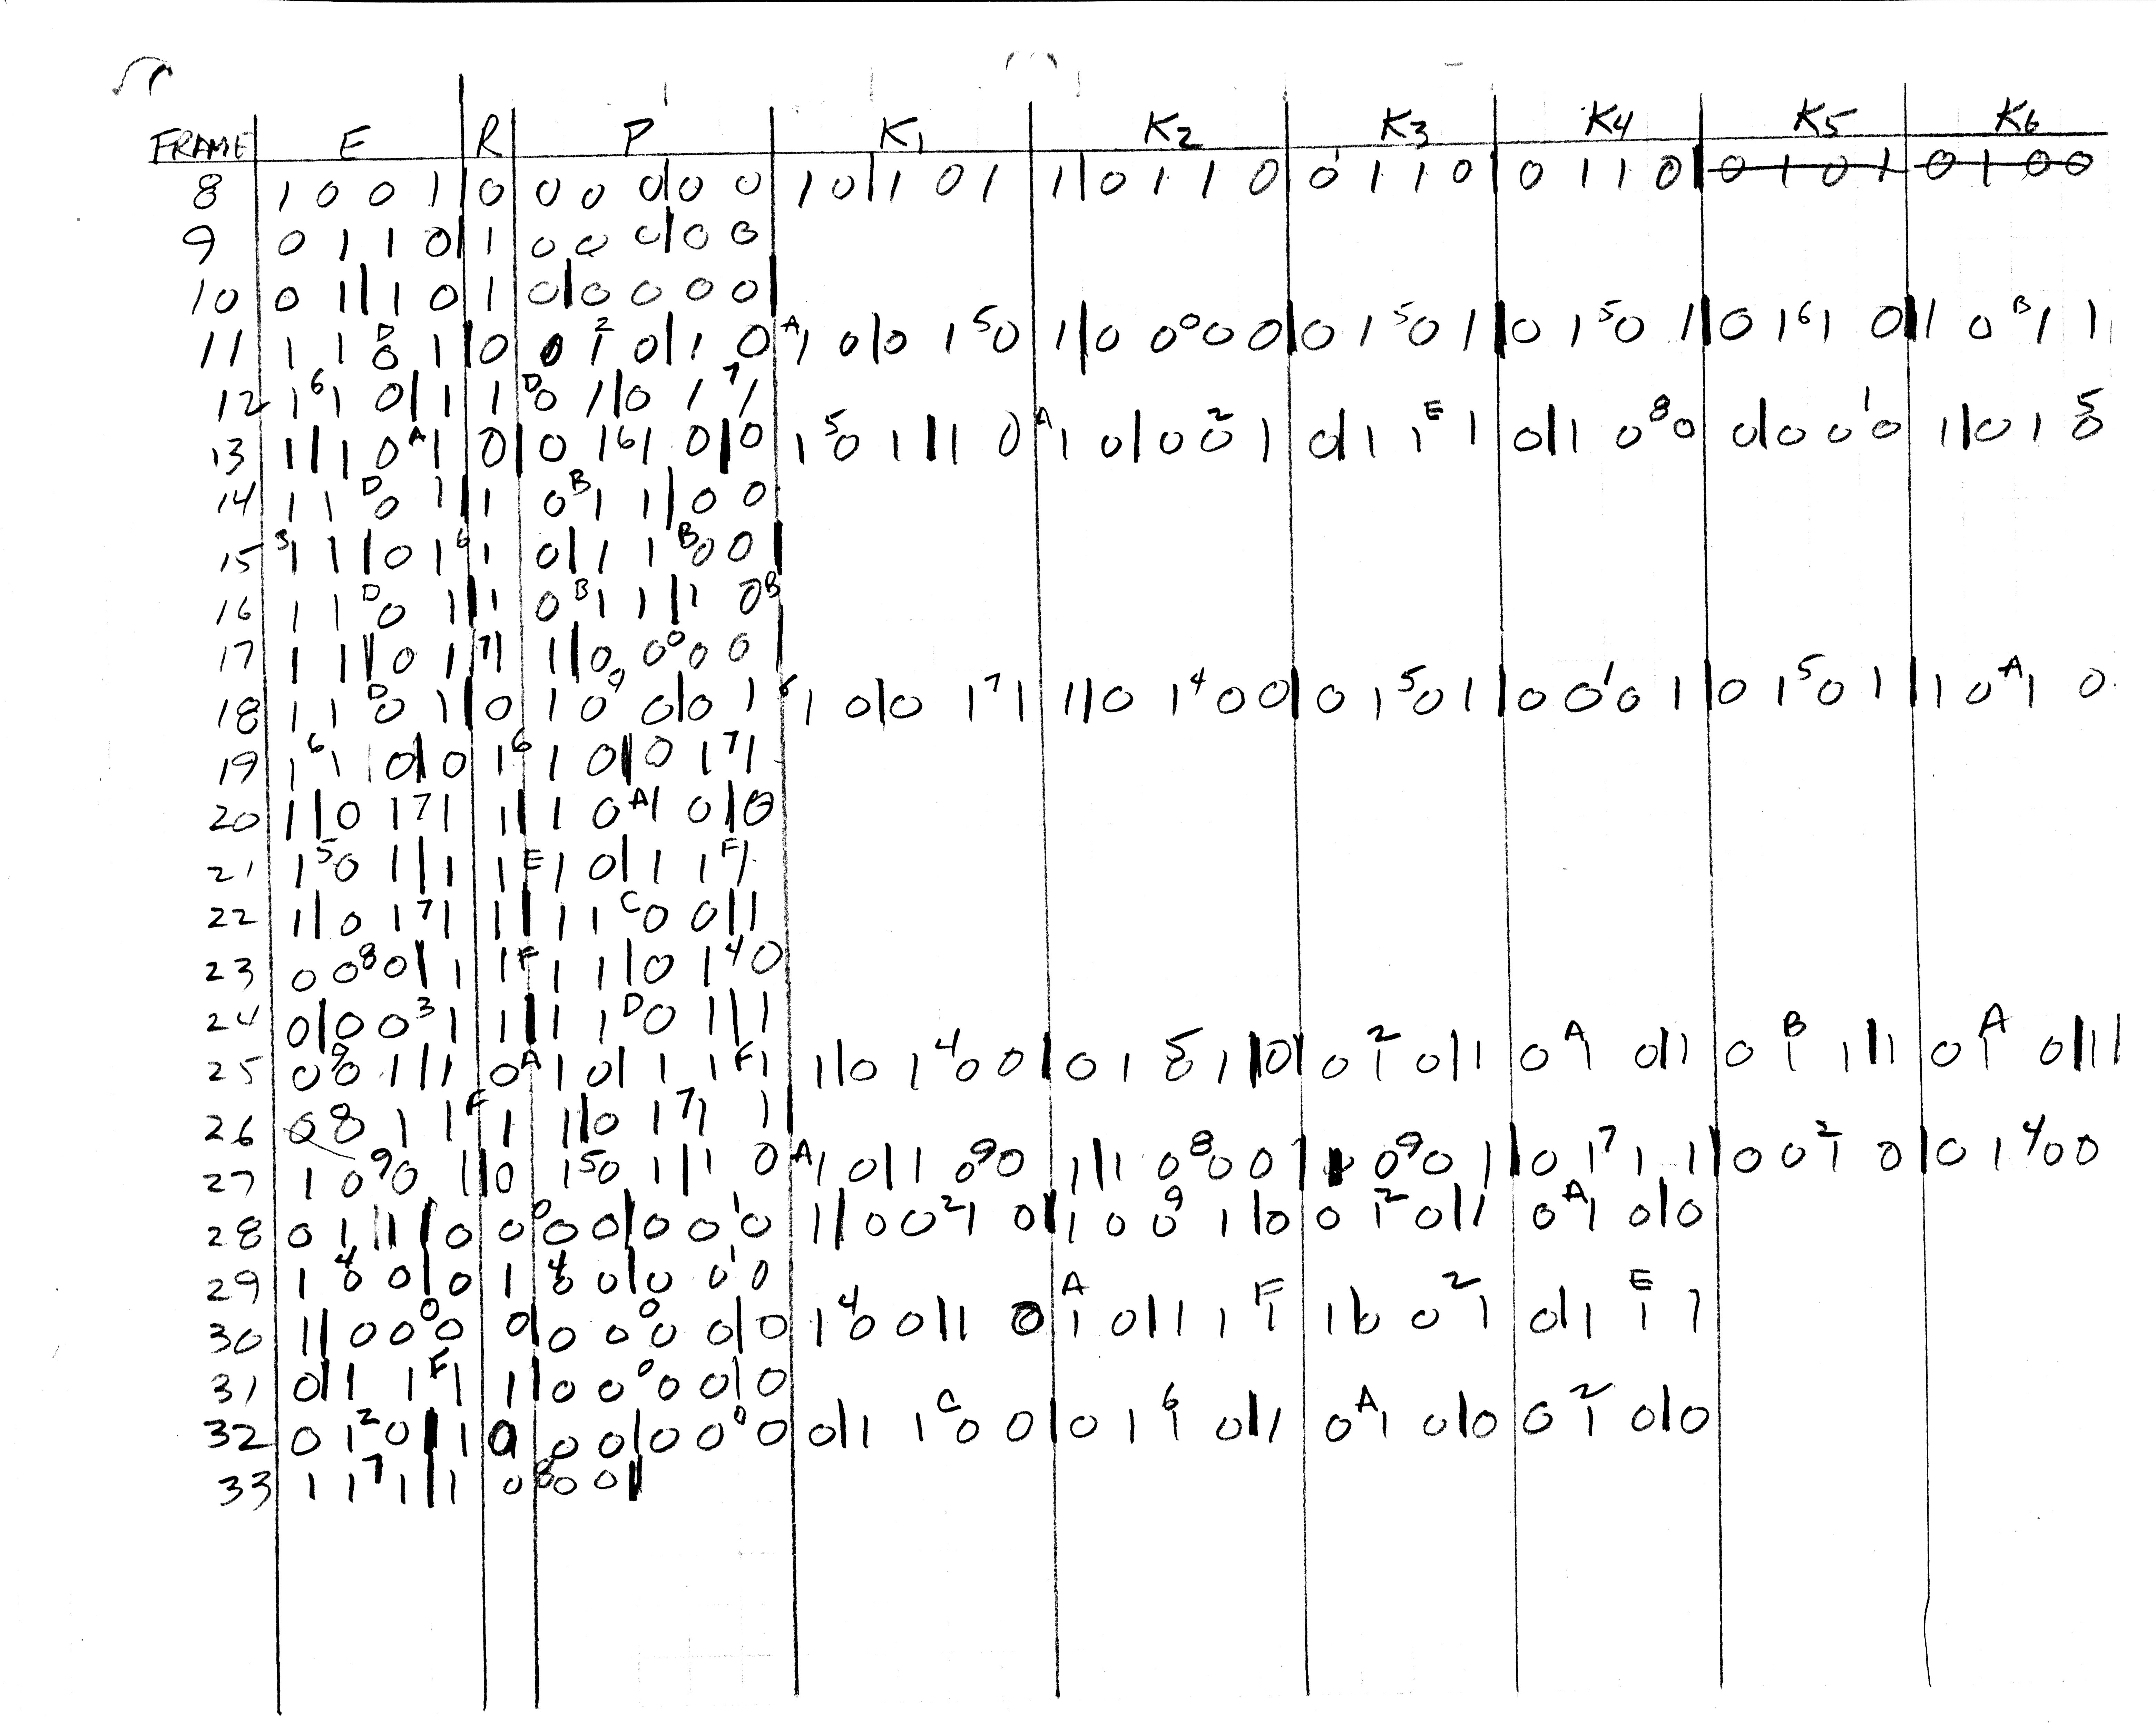 FRAME E R P K1 K2 K3 K4 K5 K6
8 1 0 0 1 0 0 0 0|0 0 1 0|1 0 1 1|0 1 1 0 0 1 1 0 0 1 1 0| 0 1 0 1 0 1 0 0
9 0 1 1 0| 1 0 0 0|0 0
10 0 1|1 0 1 0|0 0 0 0|
11 1 1 D 0 1|0 0 2 1 0|1 0 A 1 0|0 1 5 0 1|0 0 0 0 0|0 1 5 0 1|0 1 5 0 1|0 1 6 1 0|1 0 B 1 1
12 1 6 1 0|1 1 D 0 1|0 1 7 1
13 1|1 0 A 1 0|0 1 6 1 0|0 1 5 0 1|1 0 A 1 0|0 2 0 1 0|1 E 1 1 0|1 0 8 0 0|0 0 1 0 1|0 1 5 0
14 1 1 D 0 1|1 0 B 1 1|0 0
15 3 1 1|0 1 6 1 0|1 1 B 0 0|
16 1 1 D 0 1|1 0 B 1 1|1 0 B
17 1 1|0 1 7 1 1|0 0 0 0 0|
18 1 1 D 0 1|0 1 0 9 0|0 1 6 1 0|0 1 7 1 1|0 1 4 0 0|0 1 5 0 1|0 0 1 0 1|0 1 5 0 1|1 0 A 1 0
19 1 6 1 0|0 1 6 1 0|0 1 7 1
20 1|0 1 7 1 1|1 0 A 1 0|0
21 1 5 0 1|1 1 E 1 0|1 1 F 1
22 1|0 1 7 1 1|1 1 C 0 0|1
23 0 0 8 0|1 1 F 1 1|0 1 4 0
24 0|0 0 3 1 1|1 1 D 0 1|1
25 0 8 0 1|1 0 A 1 0|1 1 F 1 1|0 1 4 0 0|0 1 5 0 1|0|0 2 1 0|1 0 A 1 0|1 0 B 1 1|1 0 A 1 0|1 1
26 0 8 1 1 F 1 1|0 1 7 1 1|
27 1 0 9 0 1|0 1 5 0 1|1 0 A 1 0|1 0 9 0 1|1 0 8 0 0 1 0 9 0 1|0 1 7 1 1|0 0 2 1 0|0 1 4 0 0
28 0 1 1|0 0 0 0 0|0 0 1 0 1|0 0 2 1 0|1 0 0 9 1|0 0 2 1 0|1 0 A 1 0|0
29 1 4 0 0|0 1 4 0 0|0 0 1 0
30 1|0 0 0 0 0|0 0 0 0 0|0 1 4 0 0|1 0 A 1 0|1 1 F 1 1|0 0 2 1 0|1 E 1 1
31 0|1 1 F 1 1|0 0 0 0 0|0
32 0 1 2 0|1 0 0 0|0 0 0 0 0|1 1 C 0 0|0 1 6 1 0|1 0 A 1 0|0 0 2 1 0|0
33 1 1 7 1|1 0 8 0 0|